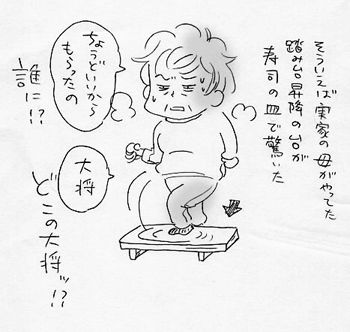 そういえば実家の母がやってた
踏み台昇降の台が
寿司の皿で驚いた
ちょうどいいから
もらったの
誰に!?
大将
どこの大将ッ!?